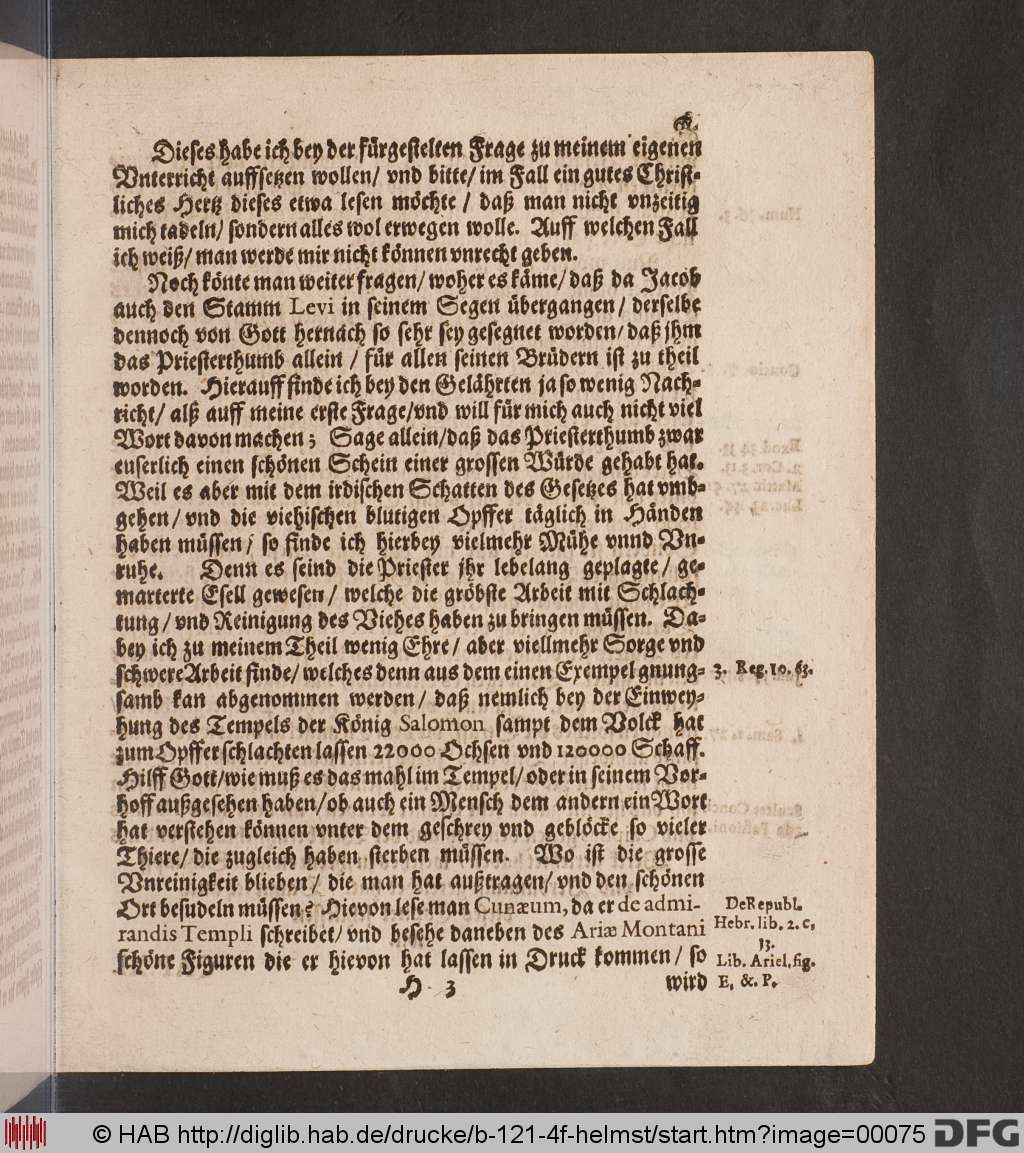 Dieses habe ich bey der fürgestelten Frage zu meinem eigenen
Vnterricht auffsetzen wollen/ vnd bitte/ im Fall ein gutes Christ-
liches Hertz dieses etwa lesen möchte / daß man nicht vnzeitig
mich tadeln/ sondern alles wol erwegen wolle. Auff welchen Fall
ich weiß/ man werde mir nicht können vnrecht geben.
Noch könte man weiter fragen/ woher es käme/ daß da Jacob
auch den Stamm Levi in seinem Segen übergangen / derselbe
dennoch von Gott hernach so sehr sey gesegnet worden/ daß jhm
das Priesterthumb allein / für allen seinen Brüdern ist zu theil
worden. Hierauff finde ich bey den Gelährten ja so wenig Nach-
richt/ alß auff meine erste Frage/vnd will für mich auch nicht viel
Wort davon machen; Sage allein/daß das Priesterthumb zwar
euserlich einen schönen Schein einer grossen Würde gehabt hat.
Weil es aber mit dem irdischen Schatten des Gesetzes hat vmb-
gehen/ vnd die viehischen blutigen Opffer täglich in Händen
haben müssen/ so finde ich hierbey vielmehr Mühe vnnd Vn-
ruhe. Denn es seind die Priester jhr lebelang geplagte/ ge-
marterte Esell gewesen/ welche die gröbste Arbeit mit Schlach-
tung/ vnd Reinigung des Viehes haben zu bringen müssen. Da-
bey ich zu meinem Theil wenig Ehre/ aber viellmehr Sorge vnd
schwere Arbeit finde/ welches denn aus dem einen Exempel gnung- 3. Reg. 10. 63.
samb kan abgenommen werden/ daß nemlich bey der Einwey-
hung des Tempels der König Salomon sampt dem Volck hat
zum Opffer schlachten lassen 22000 Ochsen vnd 120000 Schaff.
Hilff Gott/wie muß es das mahl im Tempel/ oder in seinem Vor-
hoff außgesehen haben/ob auch ein Mensch dem andern ein Wort
hat verstehen können vnter dem geschrey vnd geblöcke so vieler
Thiere/ die zugleich haben sterben müssen. Wo ist die grosse
Vnreinigkeit blieben/ die man hat außtragen/ vnd den schönen
Ort besudeln müssen? Hievon lese man Cunæum, da er de admi-
randis Templi schreibet/ vnd besehe daneben des Ariæ Montani
schöne Figuren die er hievon hat lassen in Druck kommen/ so
DeRepubl.
Hebr. lib. 2. c,
13.
Lib. Ariel. fig.
E, &. P.
H 3 wird
© HAB http://diglib.hab.de/drucke/b-121-4f-helmst/start.htm?image=00075 DFG